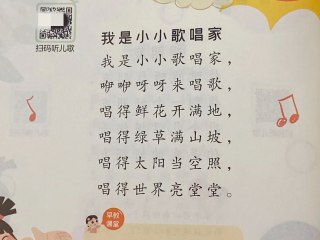 扫码听儿歌
我是小小歌唱家
我是小小歌唱家，
咿咿呀呀来唱歌，
唱得鲜花开满地，
唱得绿草满山坡，
唱得太阳当空照，
唱得世界亮堂堂。
早教
课堂